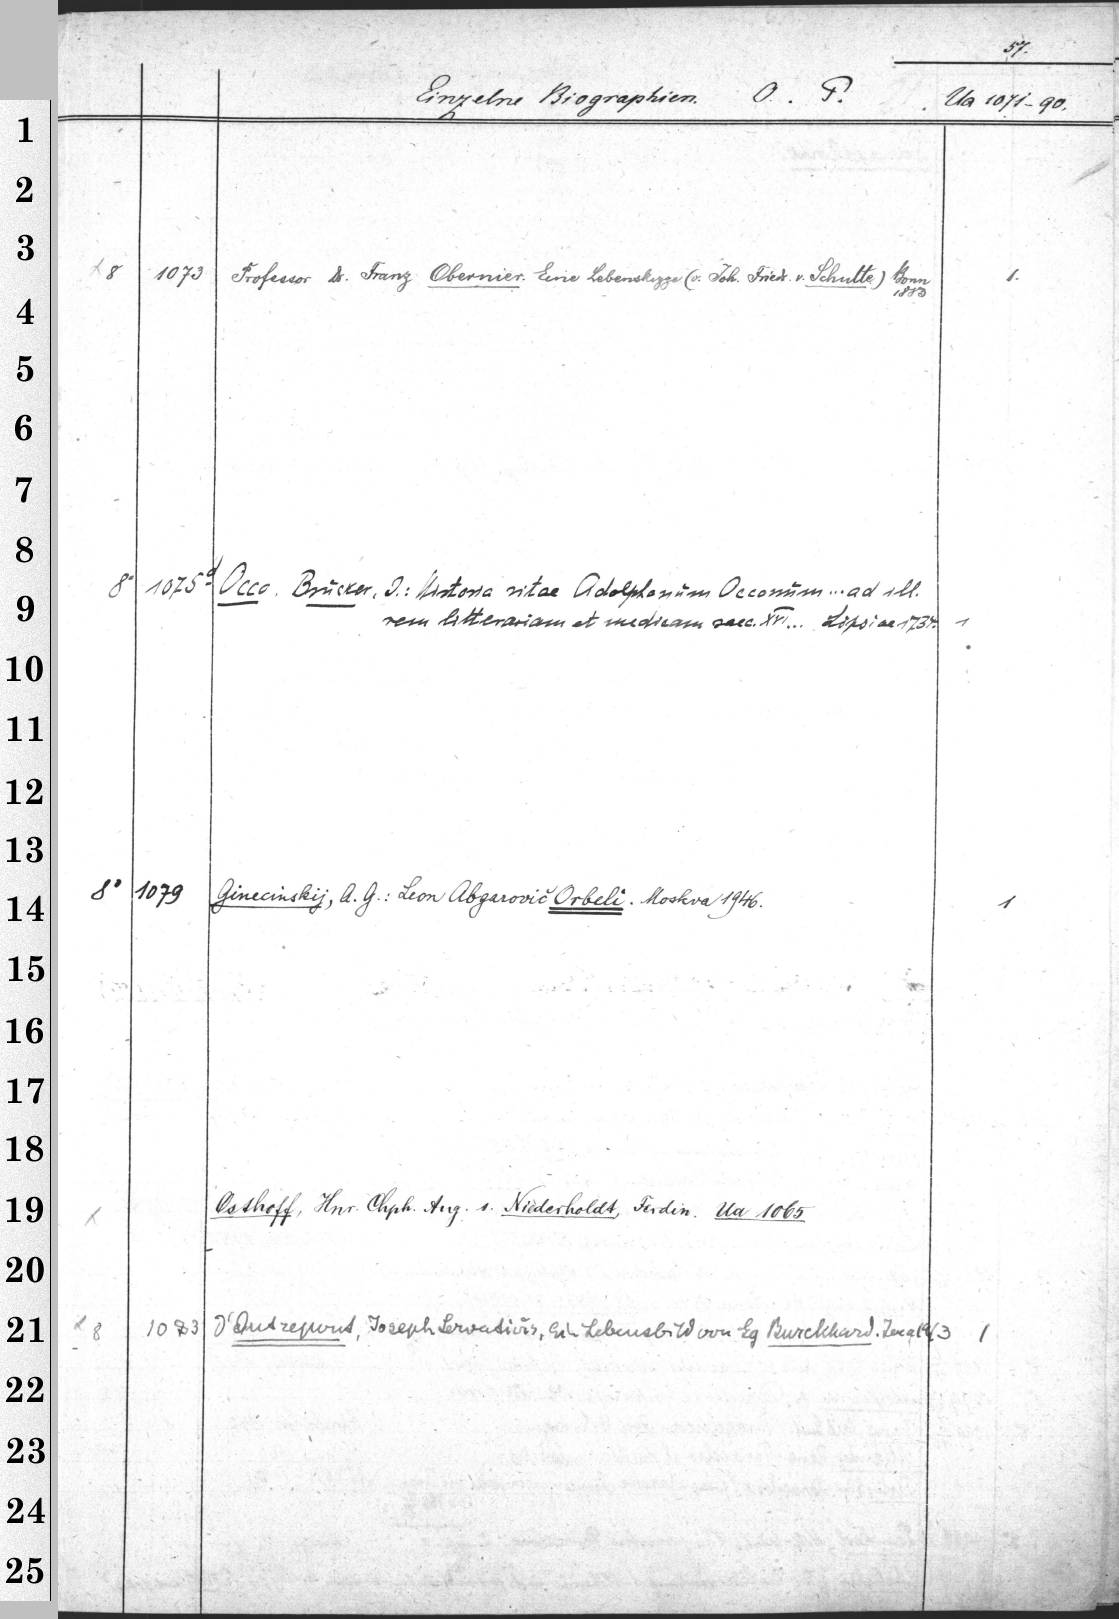 57.
Einzelne Biographien. O. P. Ua 1071-90.
1
2
3
8 1073 Professor Dr. Franz Obernier. Eine Lebensskizze (v. Joh. Friedr. v. Schulte) Bonn 1.
1883
4
5
6
7
8
8° 1075d Occo. Brucker, J.: Historia vitae Adolphorum Occonum ... ad ill.
9
rem litterariam et medicam saec. XVI... Lipsiae 1734. 1
10
11
12
13
8° 1079 Ginecinskij, A. G.: Leon Abgarovič Orbeli. Moskva 1946. 1
14
15
16
17
18
19
Osthoff, Hnr. Chph. Aug. s. Niederholdt, Ferdin. Ua 1065
20
21
8 1083 D'Outrepont, Joseph Servatius, Ein Lebensbild von Eg Burckhard. 1913 1
22
23
24
25